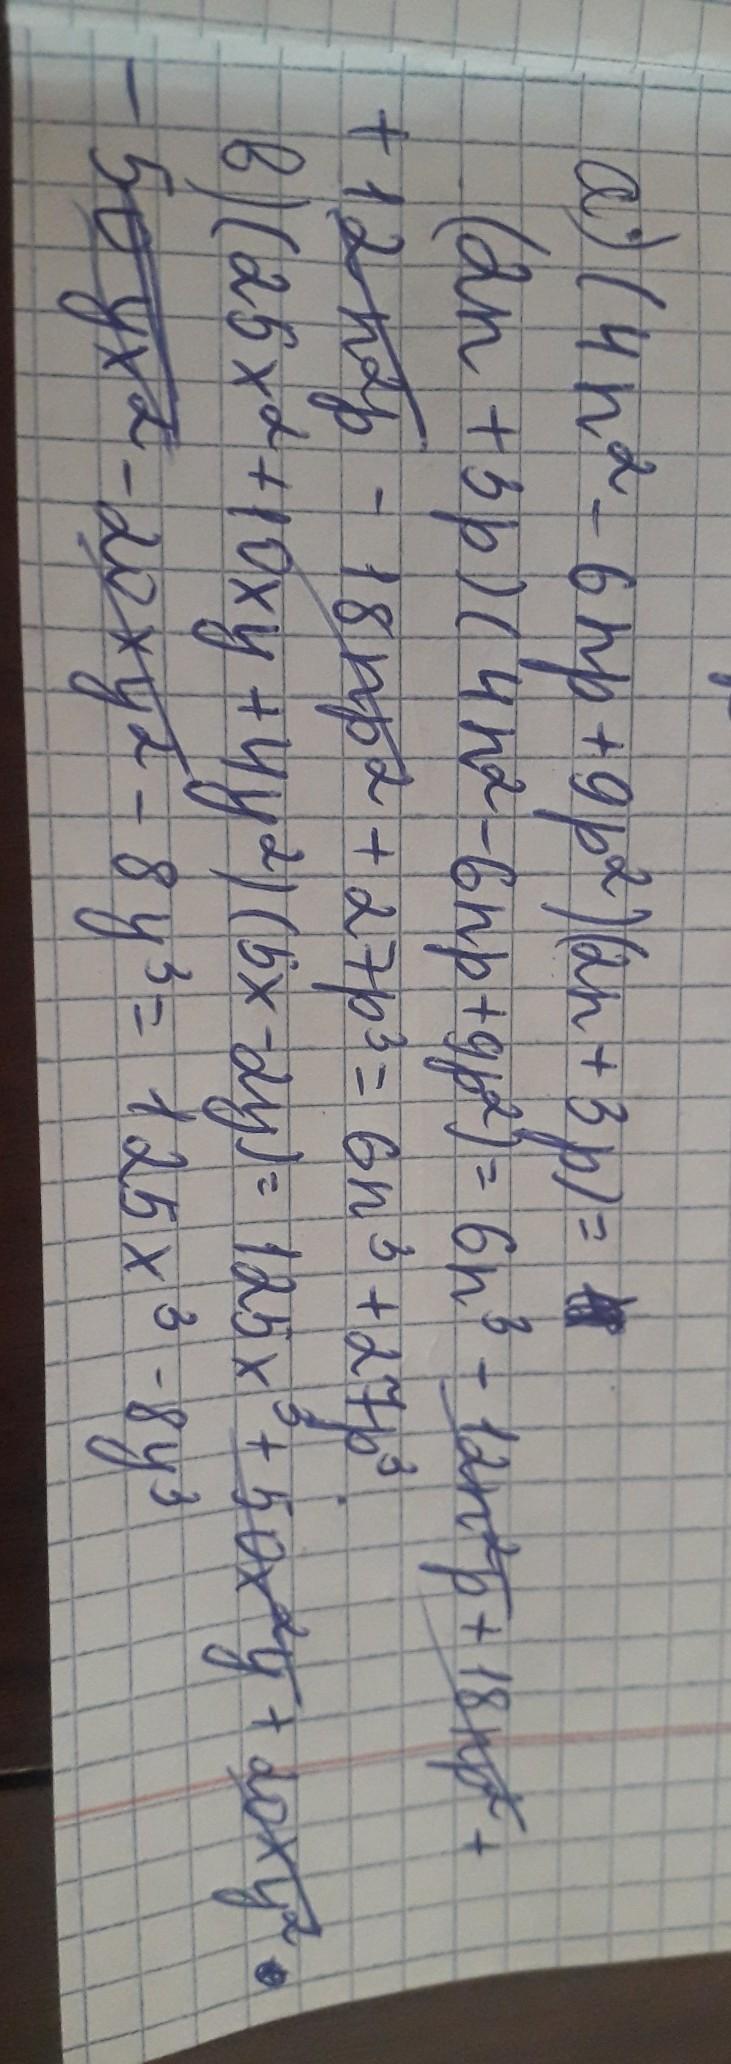 а) (4n² - 6np + 9p²)(2n + 3p) =
(2n + 3p)(4n² - 6np + 9p²) = 6n³ - 12n²p + 18np² +
+ 12n²p - 18np² + 27p³ = 6n³ + 27p³
в) (25x² + 10xy + 4y²)(5x - 2y) = 125x³ + 50x²y + 20xy²
- 50yx² - 20xy² - 8y³ = 125x³ - 8y³